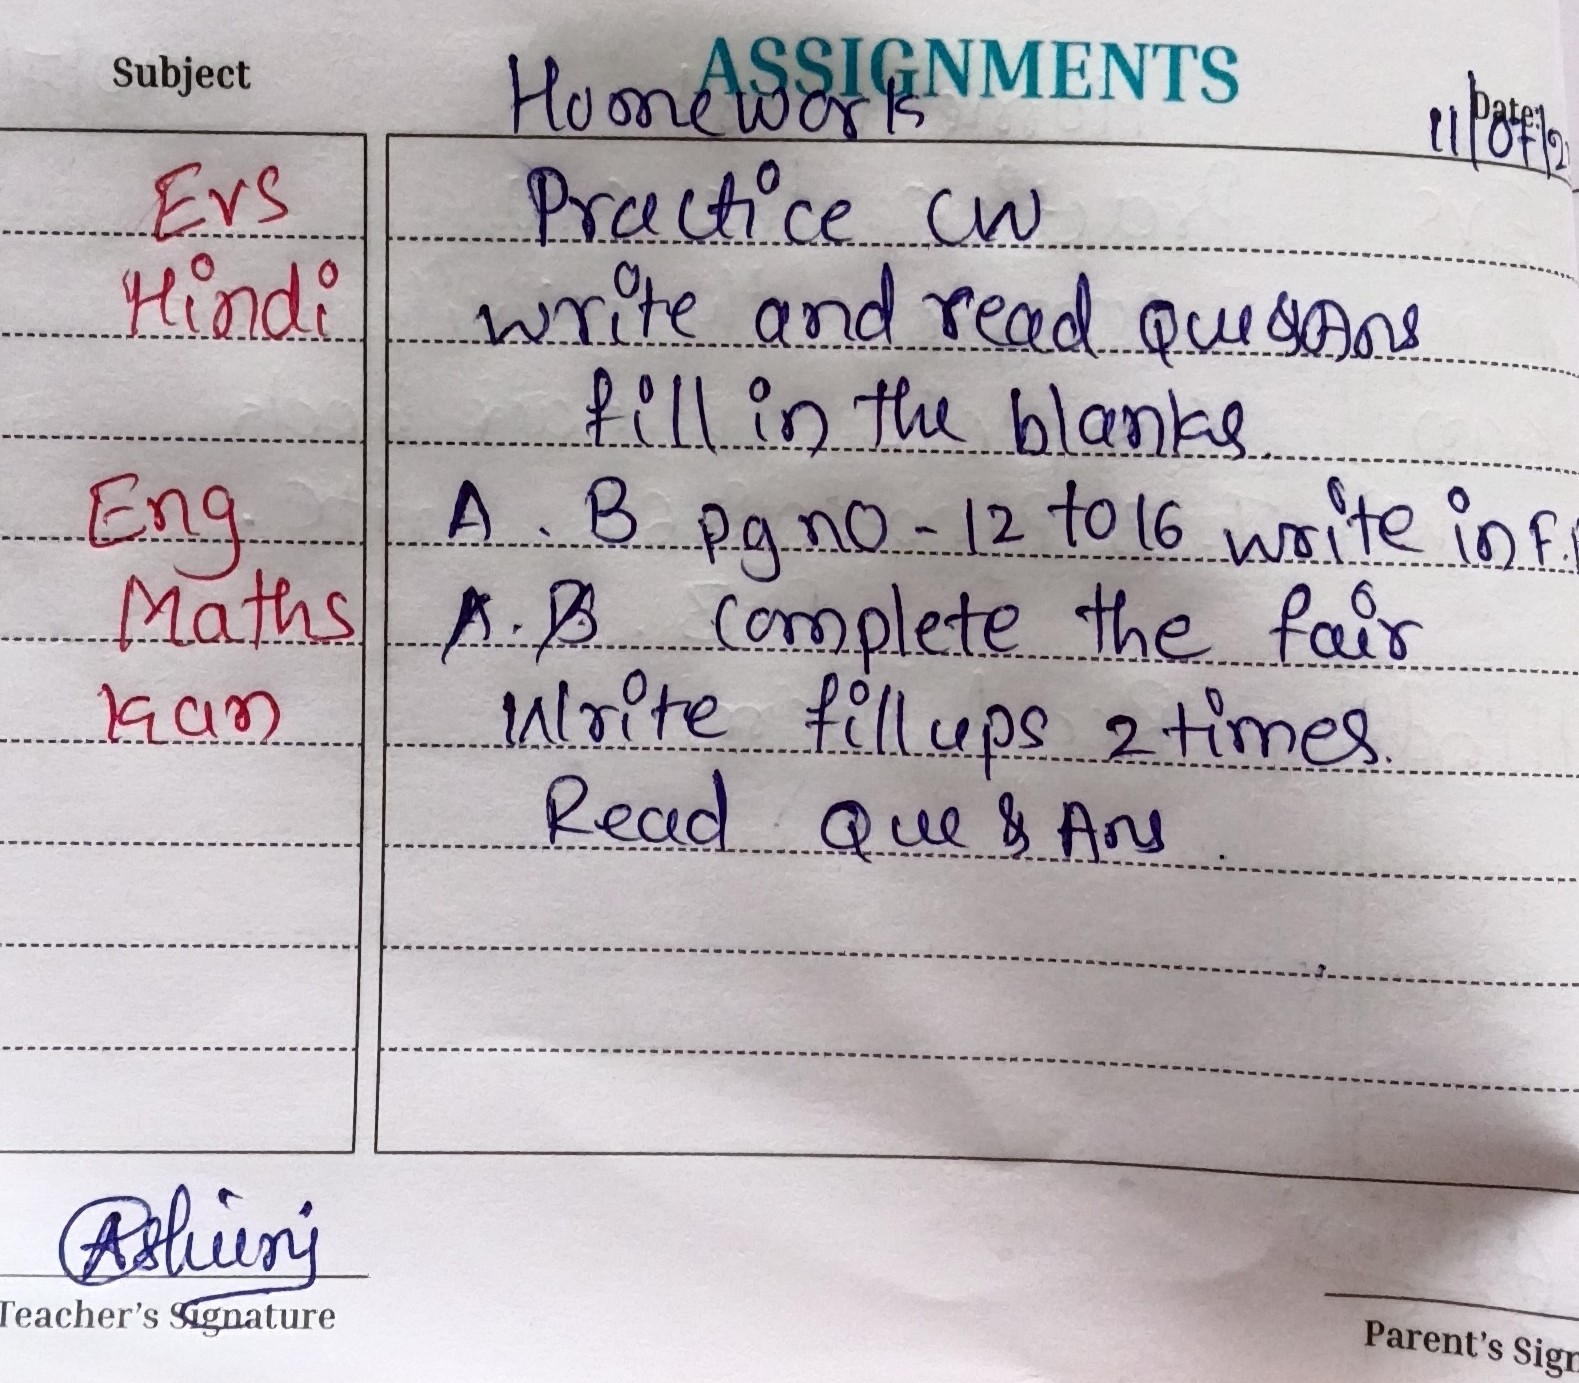 Subject ASSIGNMENTS
Homework Date:
11/07/2
Evs Practice CW
Hindi write and read Que & Ans
fill in the blanks.
Eng A . B pg no - 12 to 16 write in F.
Maths A.B complete the fair
Kan Write fill ups 2 times.
Read Que & Ans .
Teacher's Signature
Parent's Sign